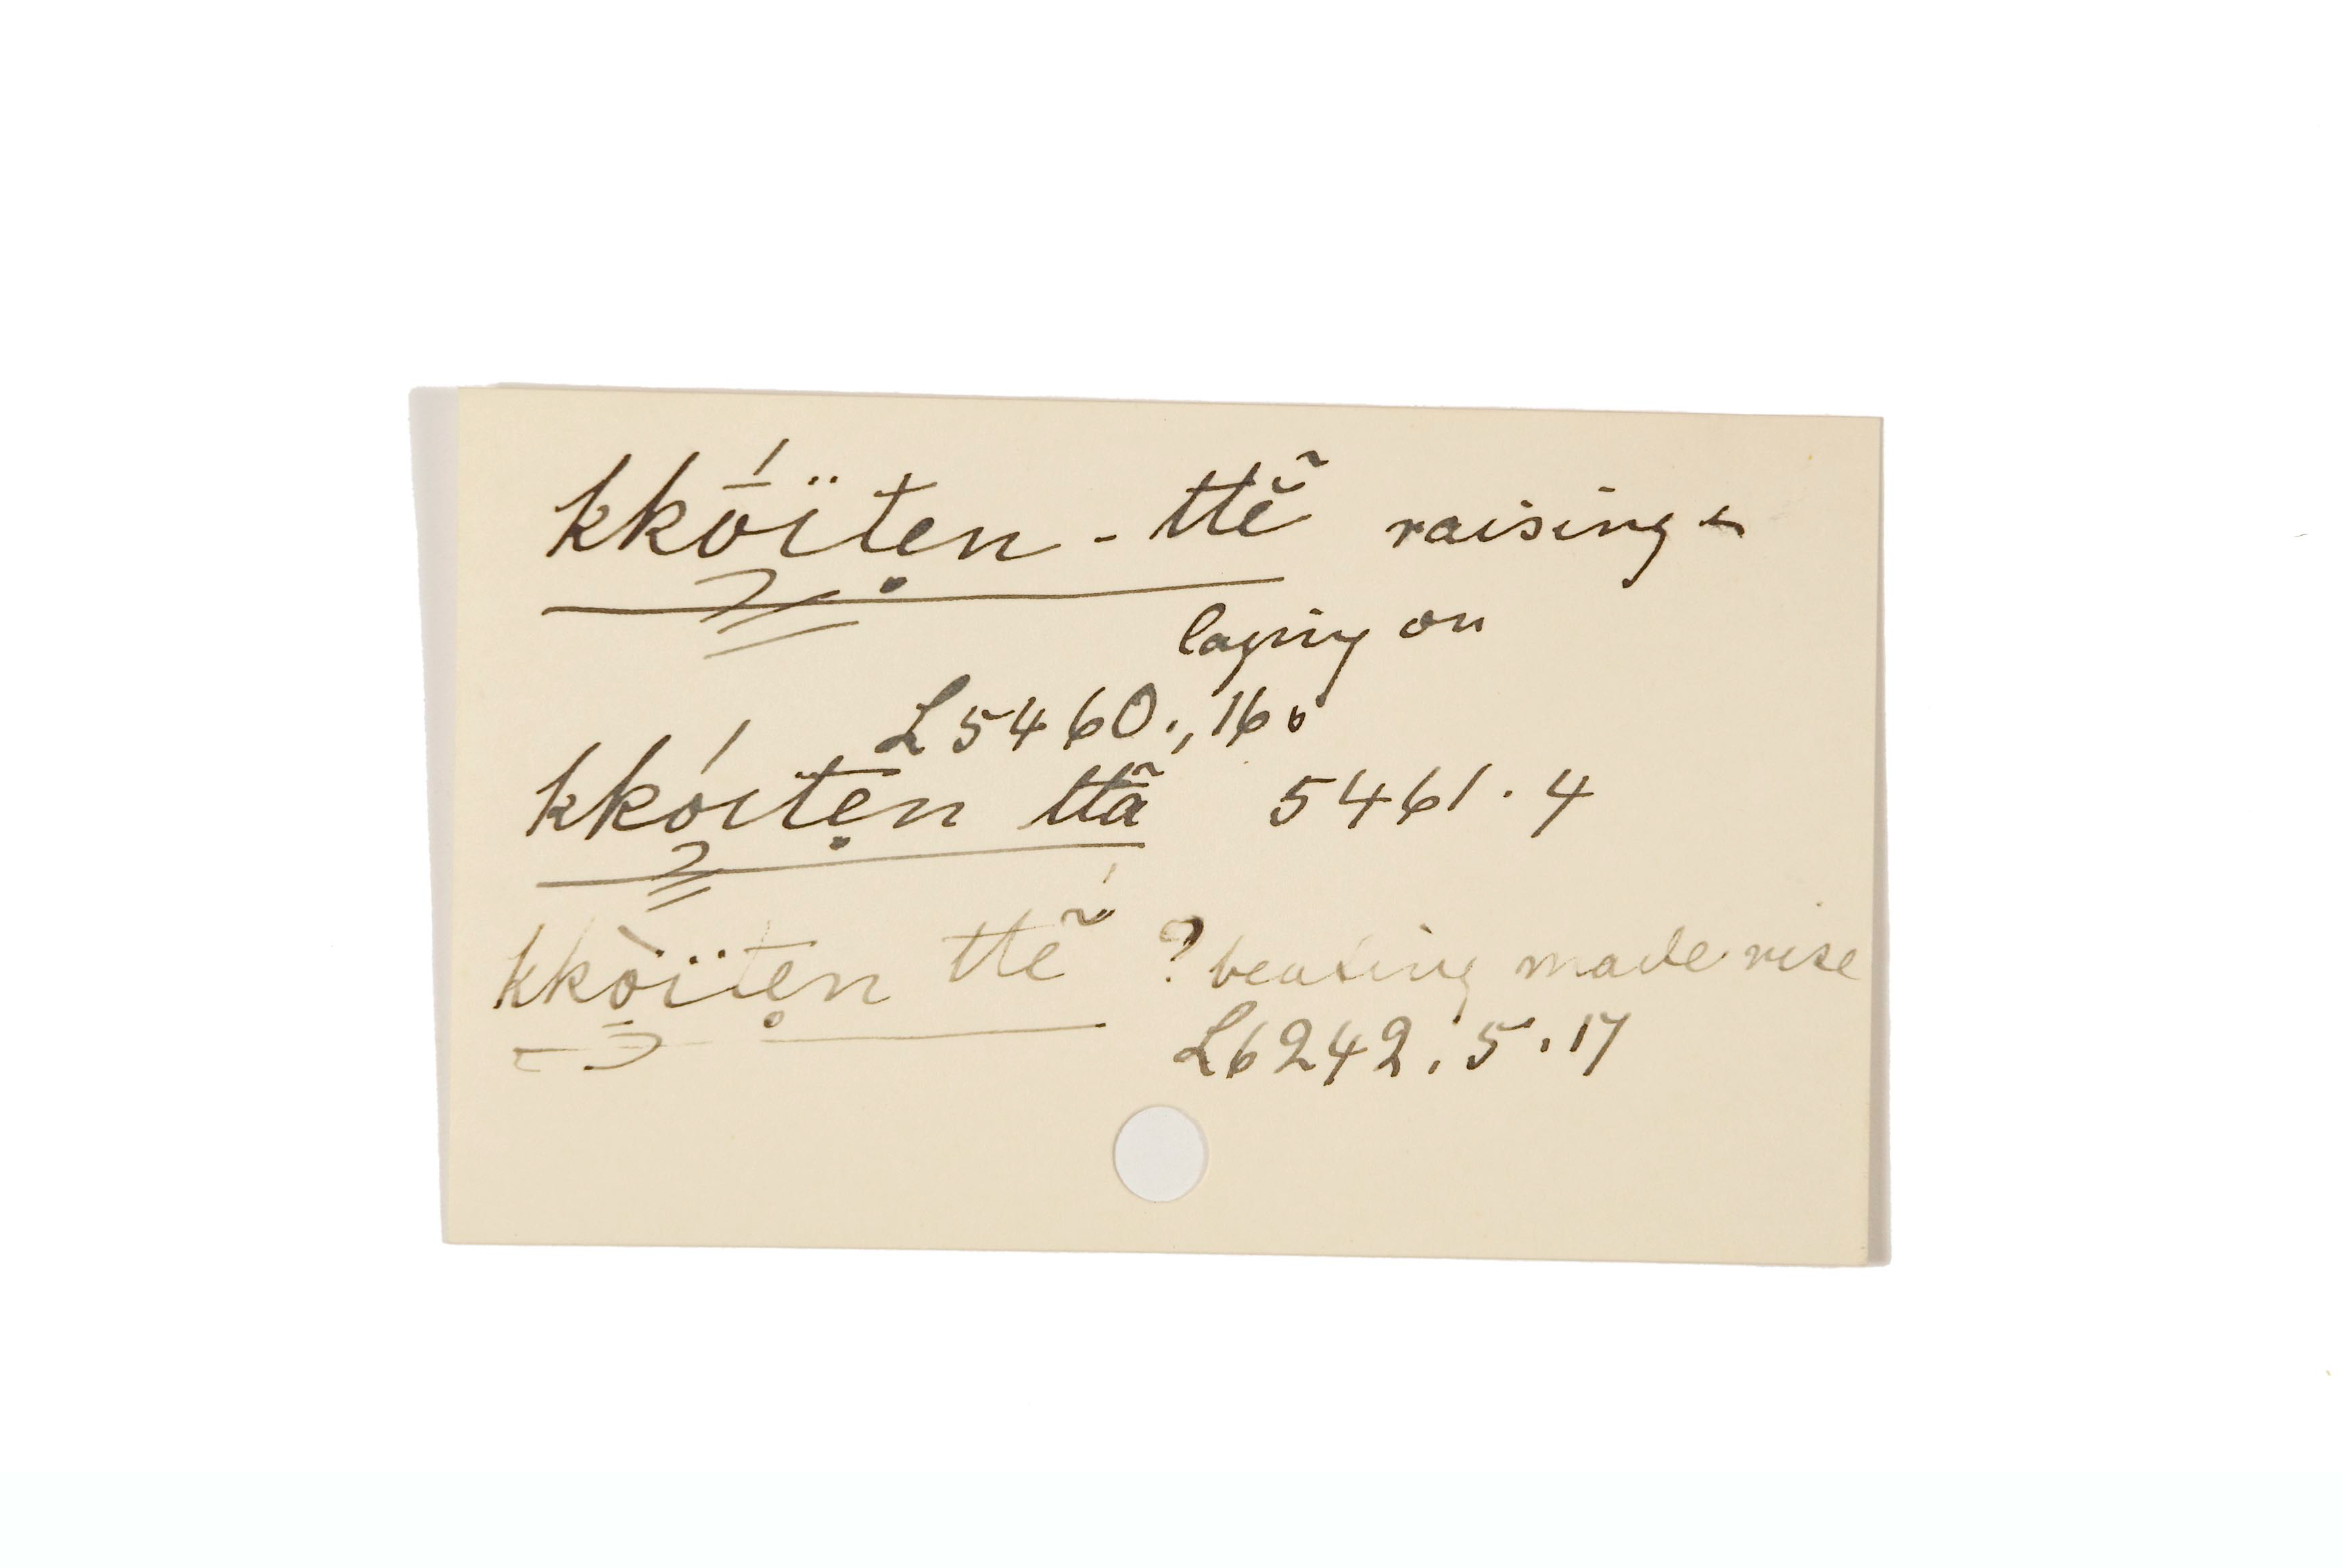 kkṓïtẹn - ttẽ̆ raising &
laying on
L5460., 16.
kkóitẹn ttã 5461. 4
kkòïtẹn ttẽ̆ ? beating made rise
L6242. 5. 17